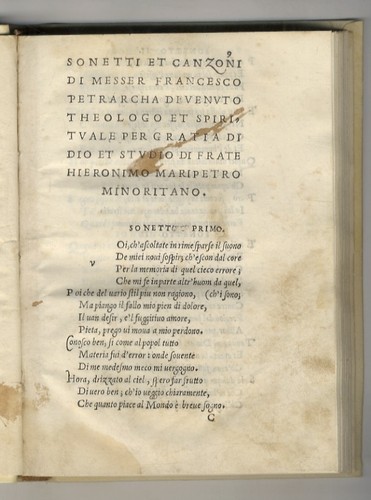 SONETTI ET CANZONI
DI MESSER FRANCESCO
PETRARCHA DEVENUTO
THEOLOGO ET SPIRI,
TVALE PER GRATIA DI
DIO ET STVDIO DI FRATE
HIERONIMO MARIPETRO
MINORITANO.
SONETTO PRIMO.
V Oi, ch'ascoltate in rime sparse il suono
De miei noui sospir, ch'escon dal core
Per la memoria di quel cieco errore;
Che mi fe in parte altr'huom da quel,
Poi che del uario stil piu non ragiono, (ch'i sono;
Ma piango il fallo mio pien di dolore,
Il uan desir, e'l fuggitiuo amore,
Pieta, prego ui moua a mio perdono.
Conosco ben, si come al popol tutto
Materia fui d'error: onde souente
Di me medesmo meco mi uergogno.
Hora, drizzato al ciel, spero far frutto
Di uero ben; ch'io ueggio chiaramente,
Che quanto piace al Mondo è breue sogno.
C